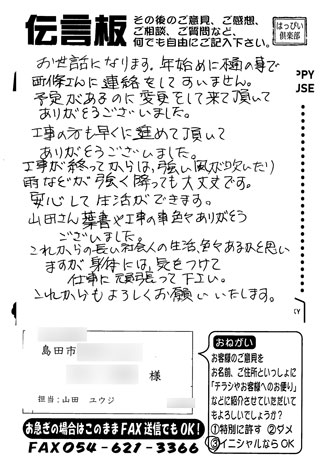 伝言板
その後のご意見、ご感想、
ご相談、ご質問など、
何でも自由にご記入下さい。
はっぴい
倶楽部
お世話になります。年始めに樋の事で
西條さんに連絡をしてすいません。
予定があるのに変更をして来て頂いて
ありがとうございました。
工事の方も早くに進めて頂いて
ありがとうございました。
工事が終ってからは、強い風が吹いたり
雨などが強く降っても大丈夫です。
安心して生活ができます。
山田さん葉書や工事の事色々ありがとう
ございました。
これからの長い社会人の生活、色々あるかと思い
ますが身体には、気をつけて
仕事に頑張って下さい。
これからもよろしくお願いいたします。
PPY
USE
島田市
様
担当:山田 ユウジ
おねがい
お客様のご意見を
お名前、ご住所といっしょに
「チラシやお客様へのお便り」
などに紹介させていただいて
もよろしいでしょうか?
①特別に許す ②ダメ
③イニシャルならOK
お急ぎの場合はこのままFAX送信でもOK!
FAX054-621-3366